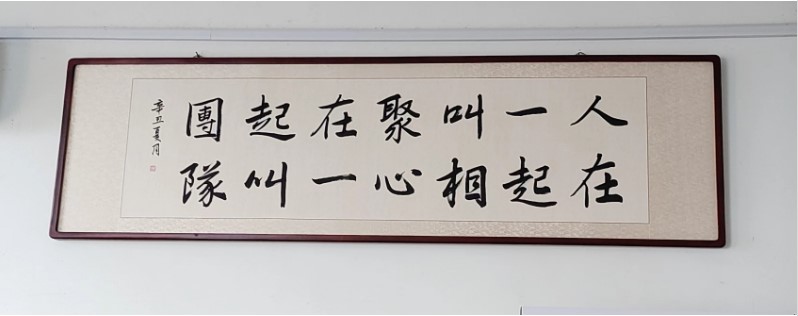 人在
一起
叫相
聚心
在一
起叫
團隊
辛丑夏月